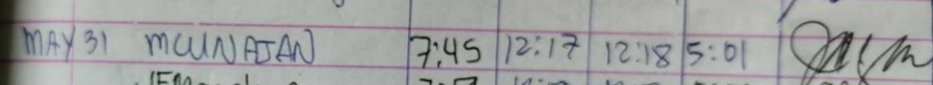 MAY 31 MCUNAJAN 7:45 12:17 12:18 5:01